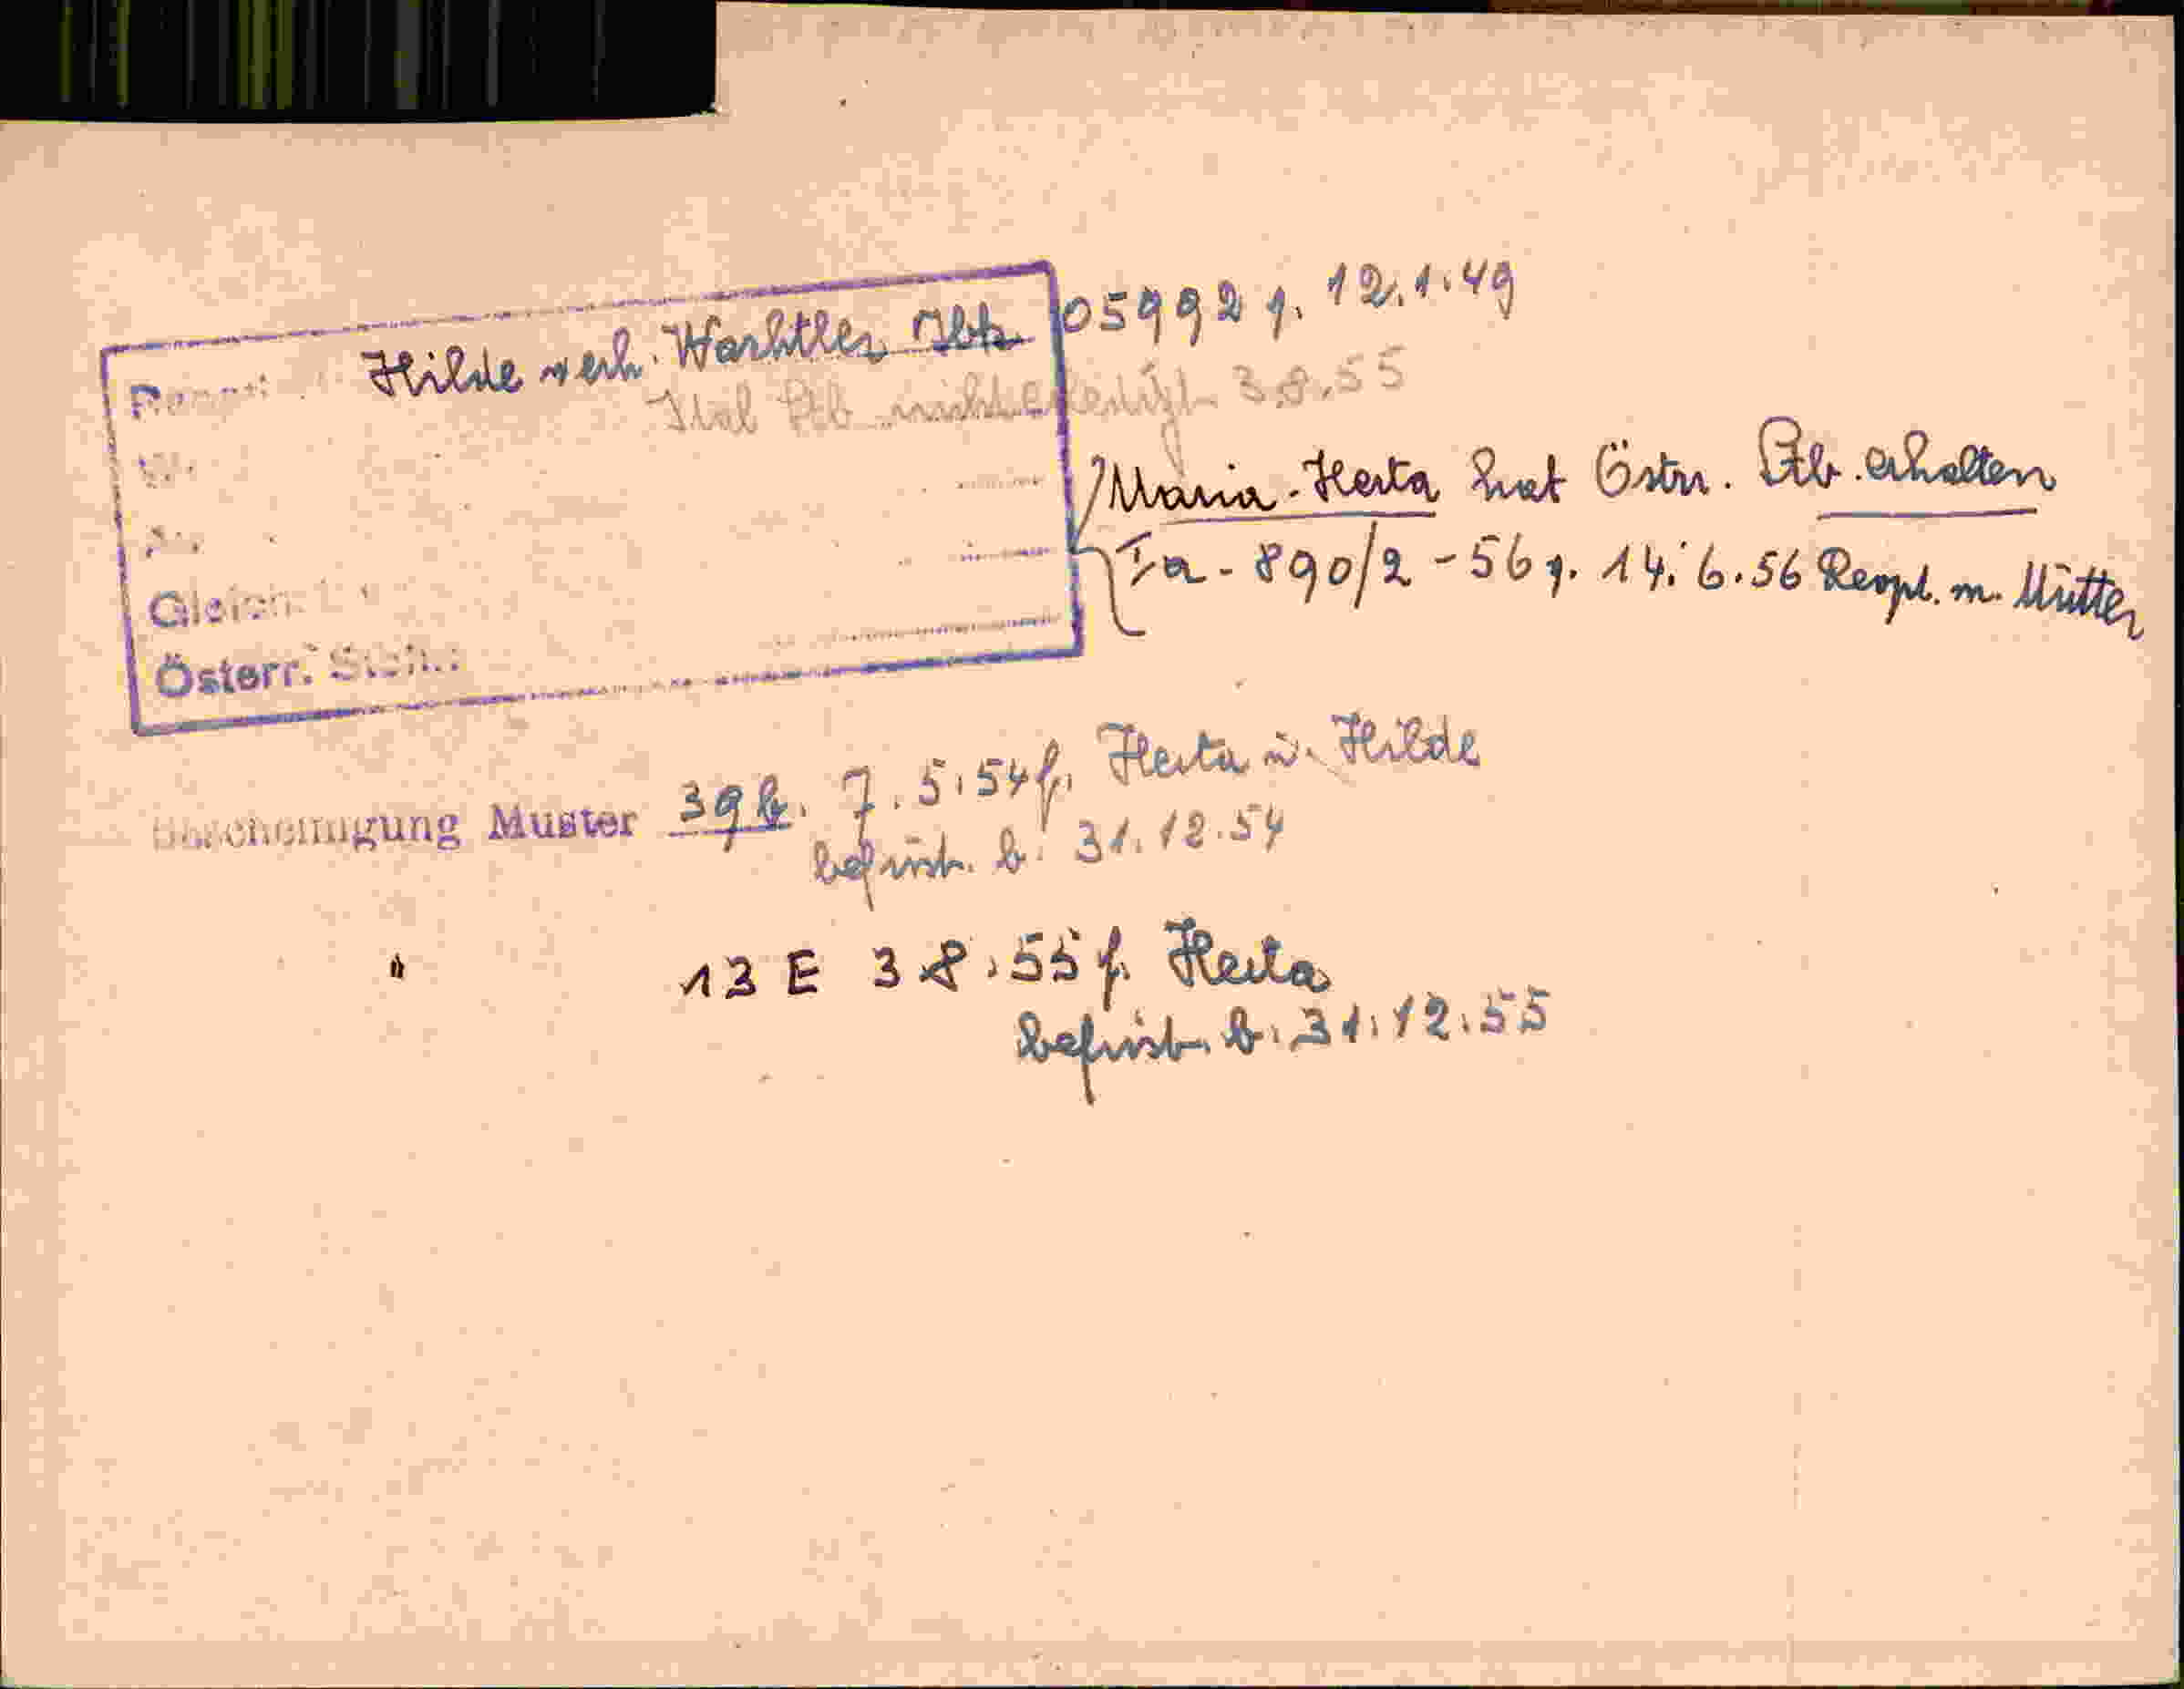 Hilde verh. Wachtler 05992 v. 12.1.49
Ital Stb nicht erledigt 3.8.55
Maria-Herta hat Östrr. Stb. erhalten
Ia - 890/2 - 56 v. 14.6.56 Reopt. m. Mutter
Österr.
Bescheinigung Muster 39 b. 7.5.54 f. Herta u. Hilde
befrist. b. 31.12.54
" 13 E 3.8.55 f. Herta
befrist. b. 31.12.55